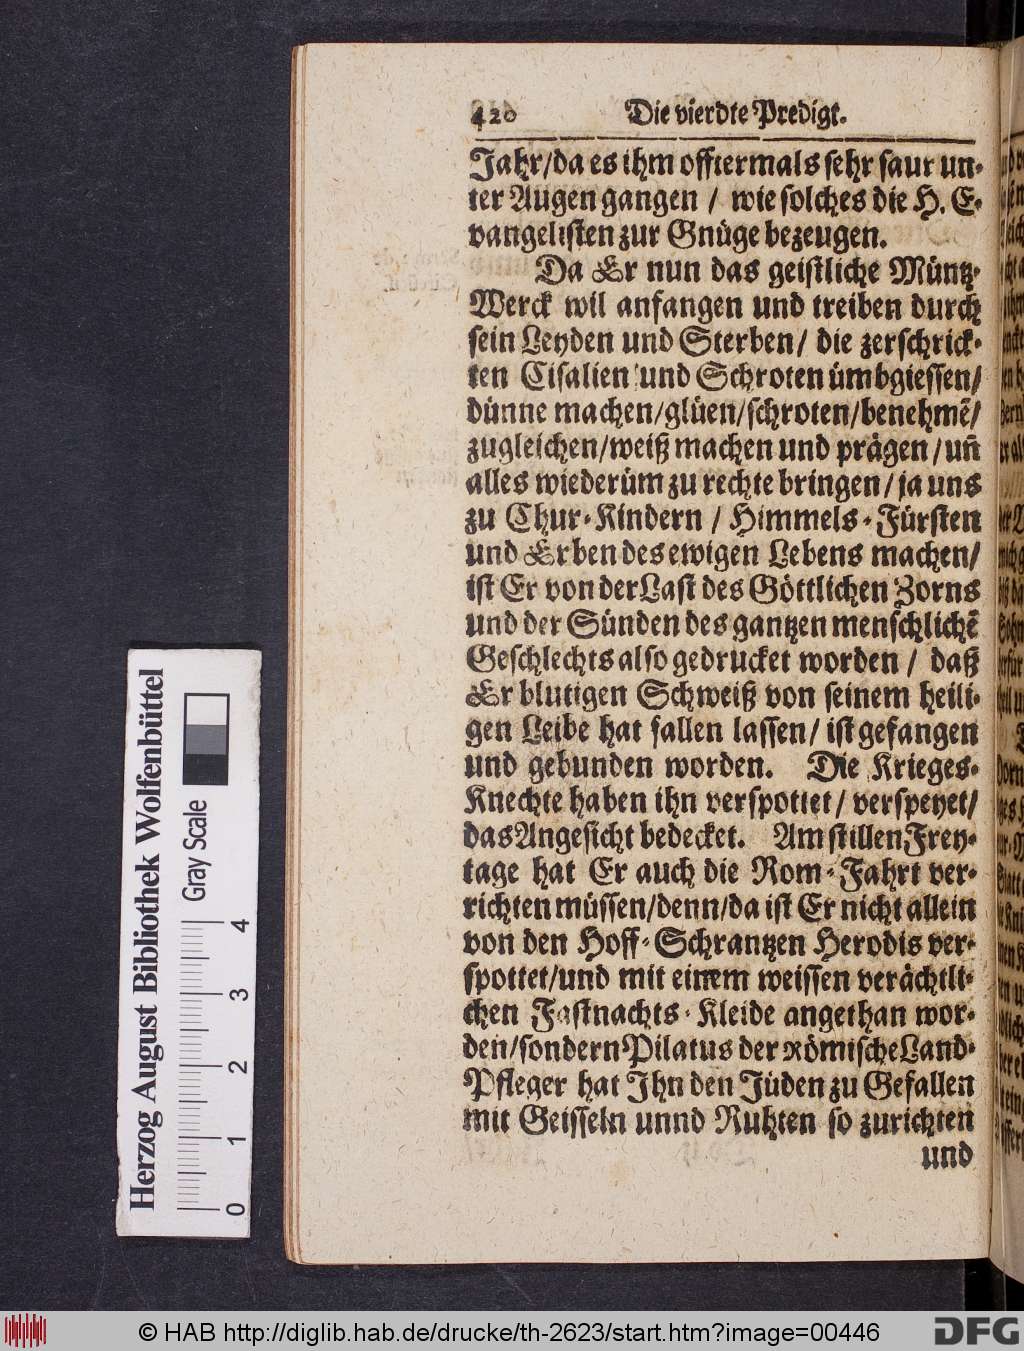 420 Die vierdte Predigt.
Jahr/da es ihm offtermals sehr saur un-
ter Augen gangen / wie solches die H. E-
vangelisten zur Gnüge bezeugen.
Da Er nun das geistliche Müntz-
Werck wil anfangen und treiben durch
sein Leyden und Sterben/ die zerschrick-
ten Cisalien und Schroten ümbgiessen/
dünne machen/glüen/schroten/benehmē/
zugleichen/weiß machen und prägen/uñ
alles wiederüm zu rechte bringen/ja uns
zu Chur-Kindern / Himmels-Fürsten
und Erben des ewigen Lebens machen/
ist Er von der Last des Göttlichen Zorns
und der Sünden des gantzen menschlichē
Geschlechts also gedrucket worden / daß
Er blutigen Schweiß von seinem heili-
gen Leibe hat fallen lassen/ ist gefangen
und gebunden worden. Die Krieges-
Knechte haben ihn verspottet/ verspeyet/
das Angesicht bedecket. Am stillen Frey-
tage hat Er auch die Rom-Fahrt ver-
richten müssen/denn/da ist Er nicht allein
von den Hoff-Schrantzen Herodis ver-
spottet/und mit einem weissen verächtli-
chen Fastnachts-Kleide angethan wor-
den/sondern Pilatus der Römische Land-
Pfleger hat Ihn den Jüden zu Gefallen
mit Geisseln unnd Ruhten so zurichten
und
Herzog August Bibliothek Wolfenbüttel
Gray Scale
0 1 2 3 4
© HAB http://diglib.hab.de/drucke/th-2623/start.htm?image=00446
DFG